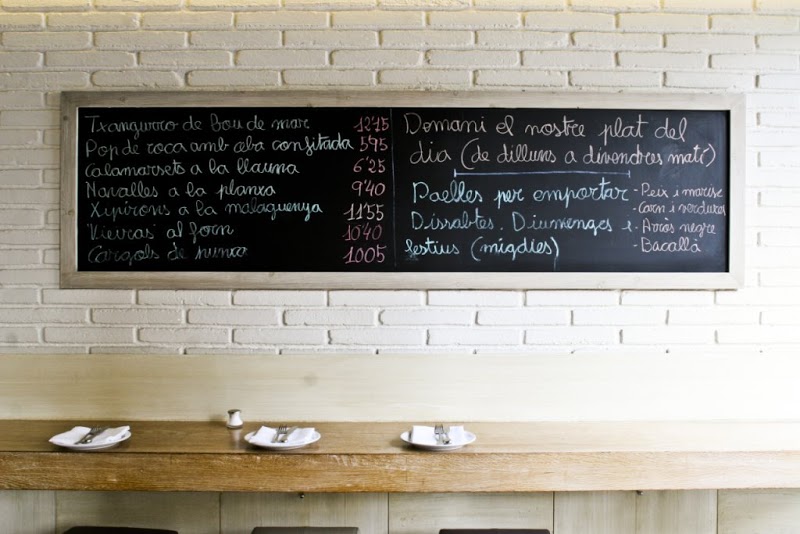 Txangurro de bou de mar 12'15
Pop de roca amb ceba confitada 595
Calamarsets a la llauna 6'25
Navalles a la planxa 9'40
Xipirons a la malaguenya 11'55
Vieiras al forn 10'40
Cargols de punxa 1005
Domani el nostre plat del
dia (de dilluns a divendres matí)
Paelles per emportar
Dissabtes. Diumenges i
festius (migdies)
- Peix i marisc
- Carn i verdures
- Arròs negre
- Bacallà